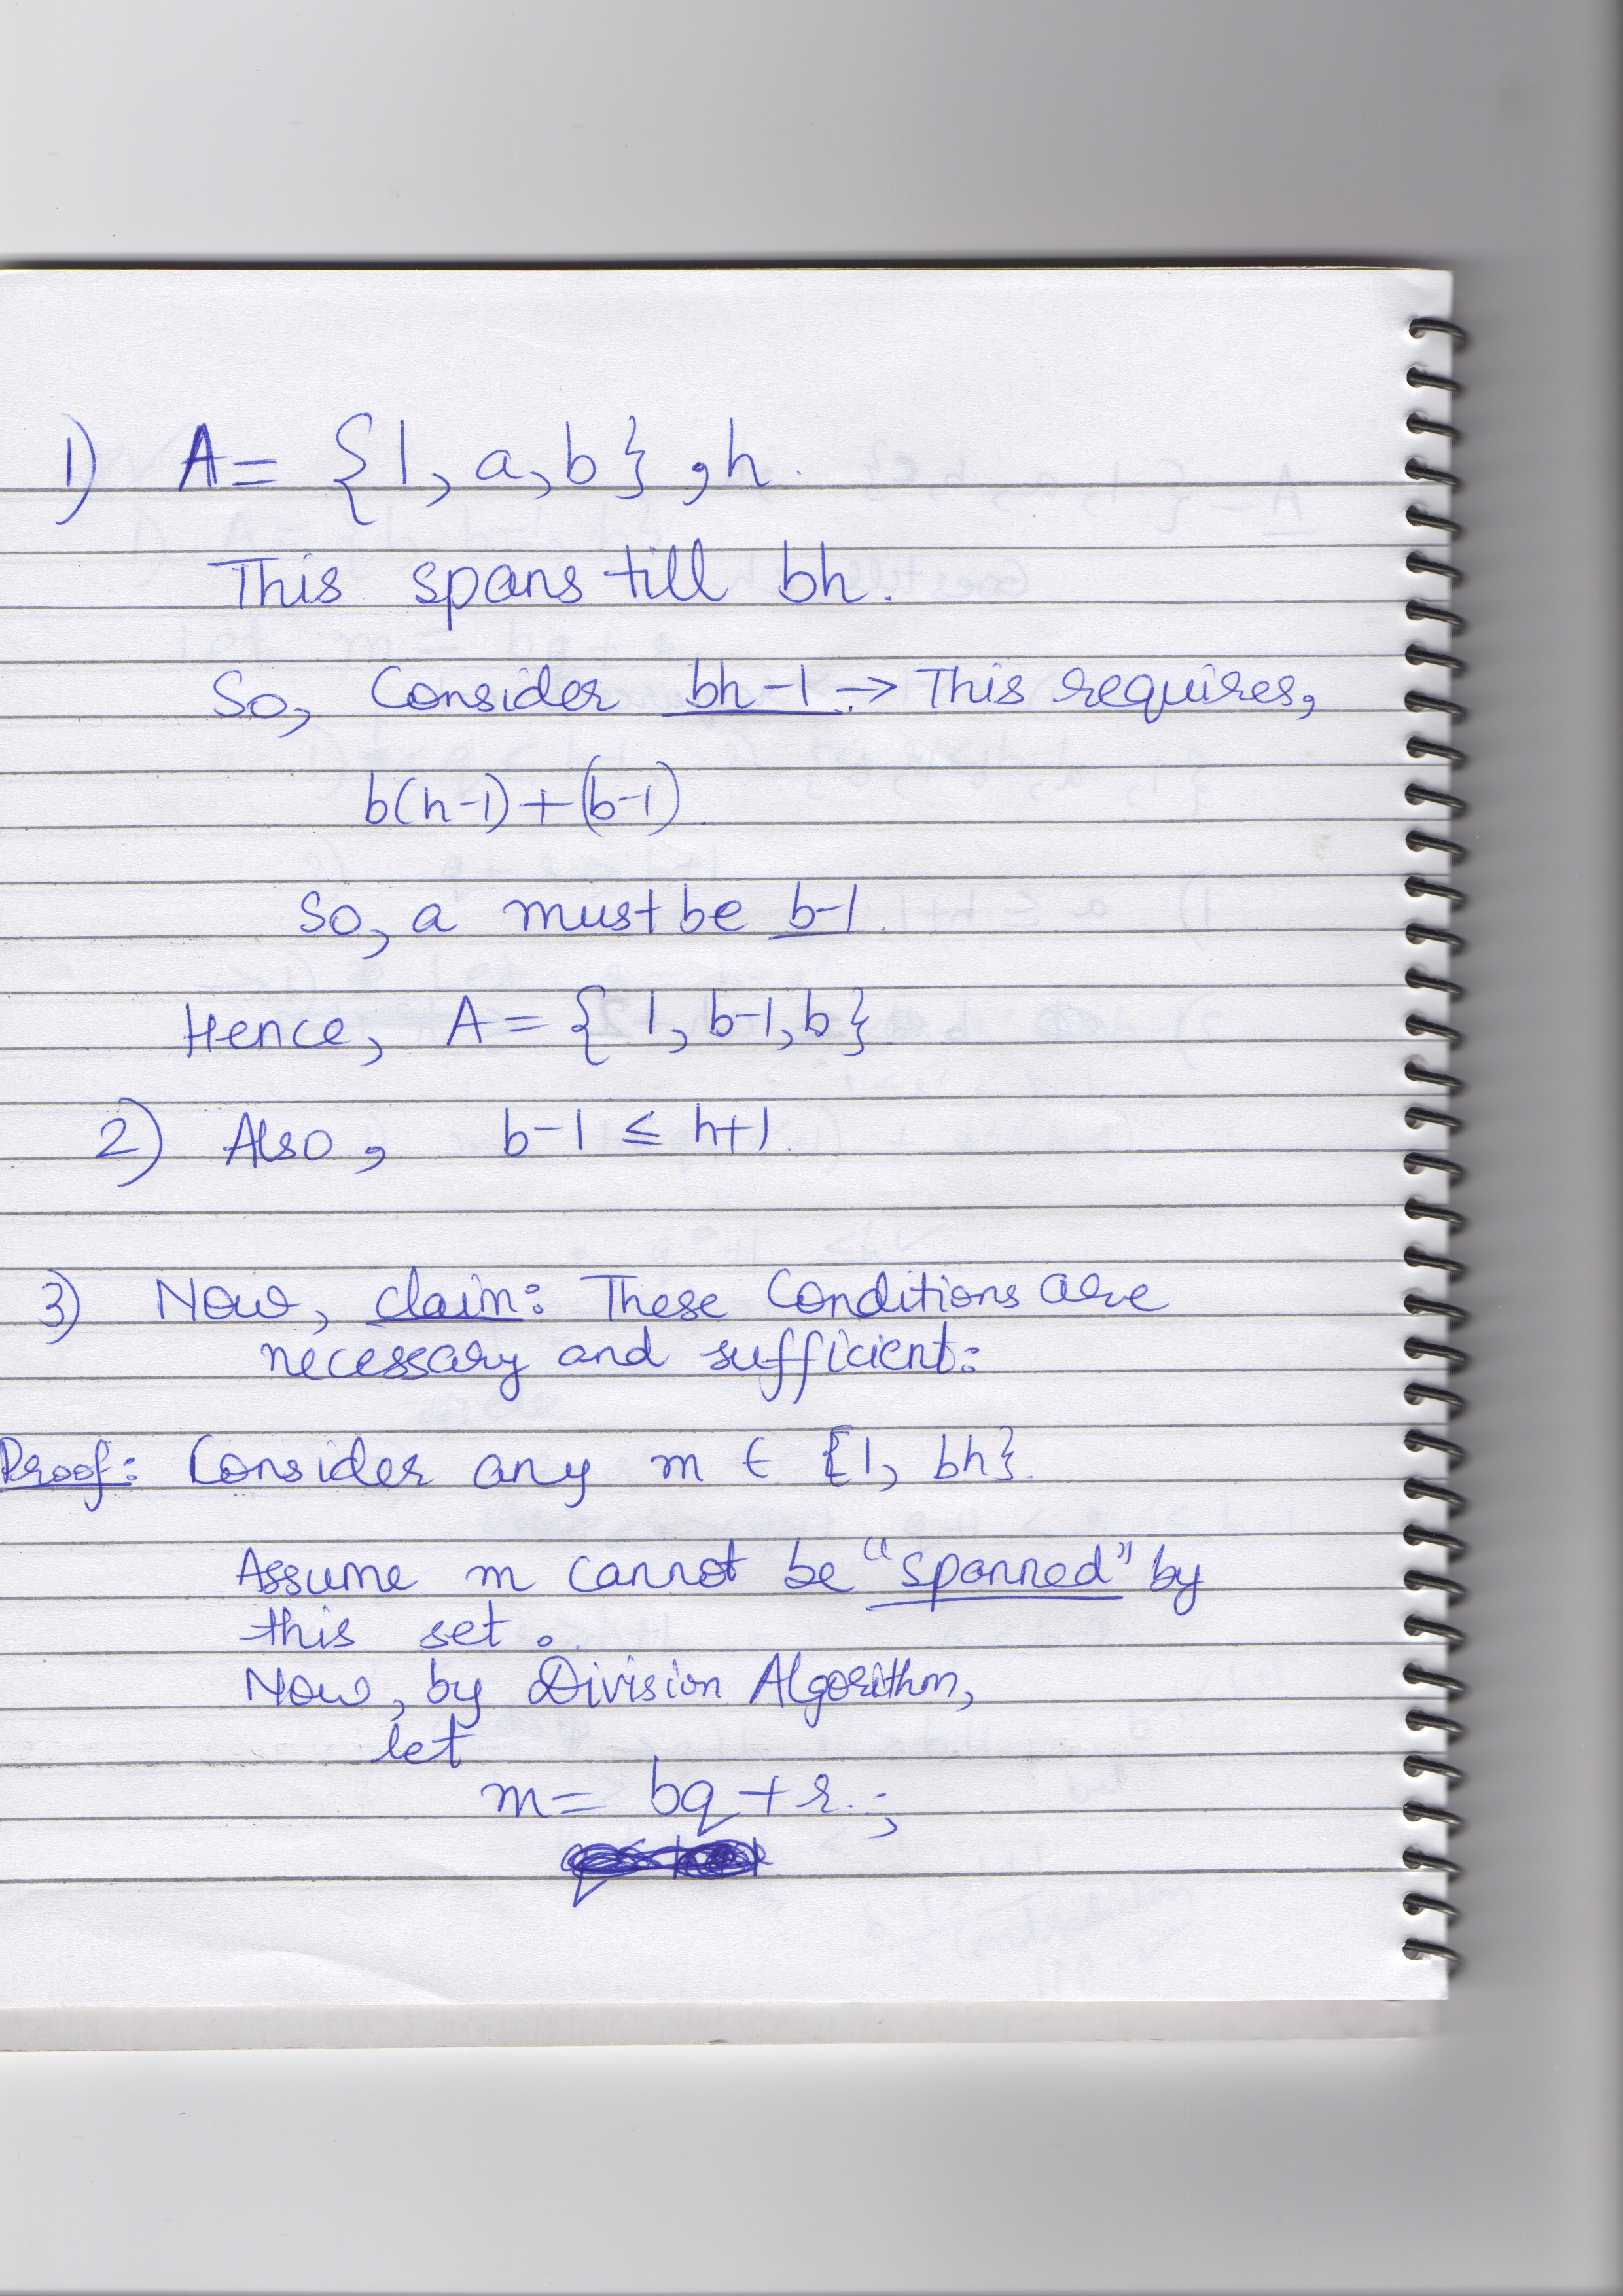 1) A = {1, a, b} , h.
This spans till bh.
So, Consider bh-1. → This requires,
b(h-1)+(b-1).
So, a must be b-1.
Hence, A = { 1, b-1, b}.
2) Also, b-1 ≤ h+1.
3) Now, claim: These Conditions are
necessary and sufficient:
Proof: Consider any m ∈ {1, bh}.
Assume m cannot be "spanned" by
this set.
Now, by Division Algorithm,
let
m = bq + r. ;